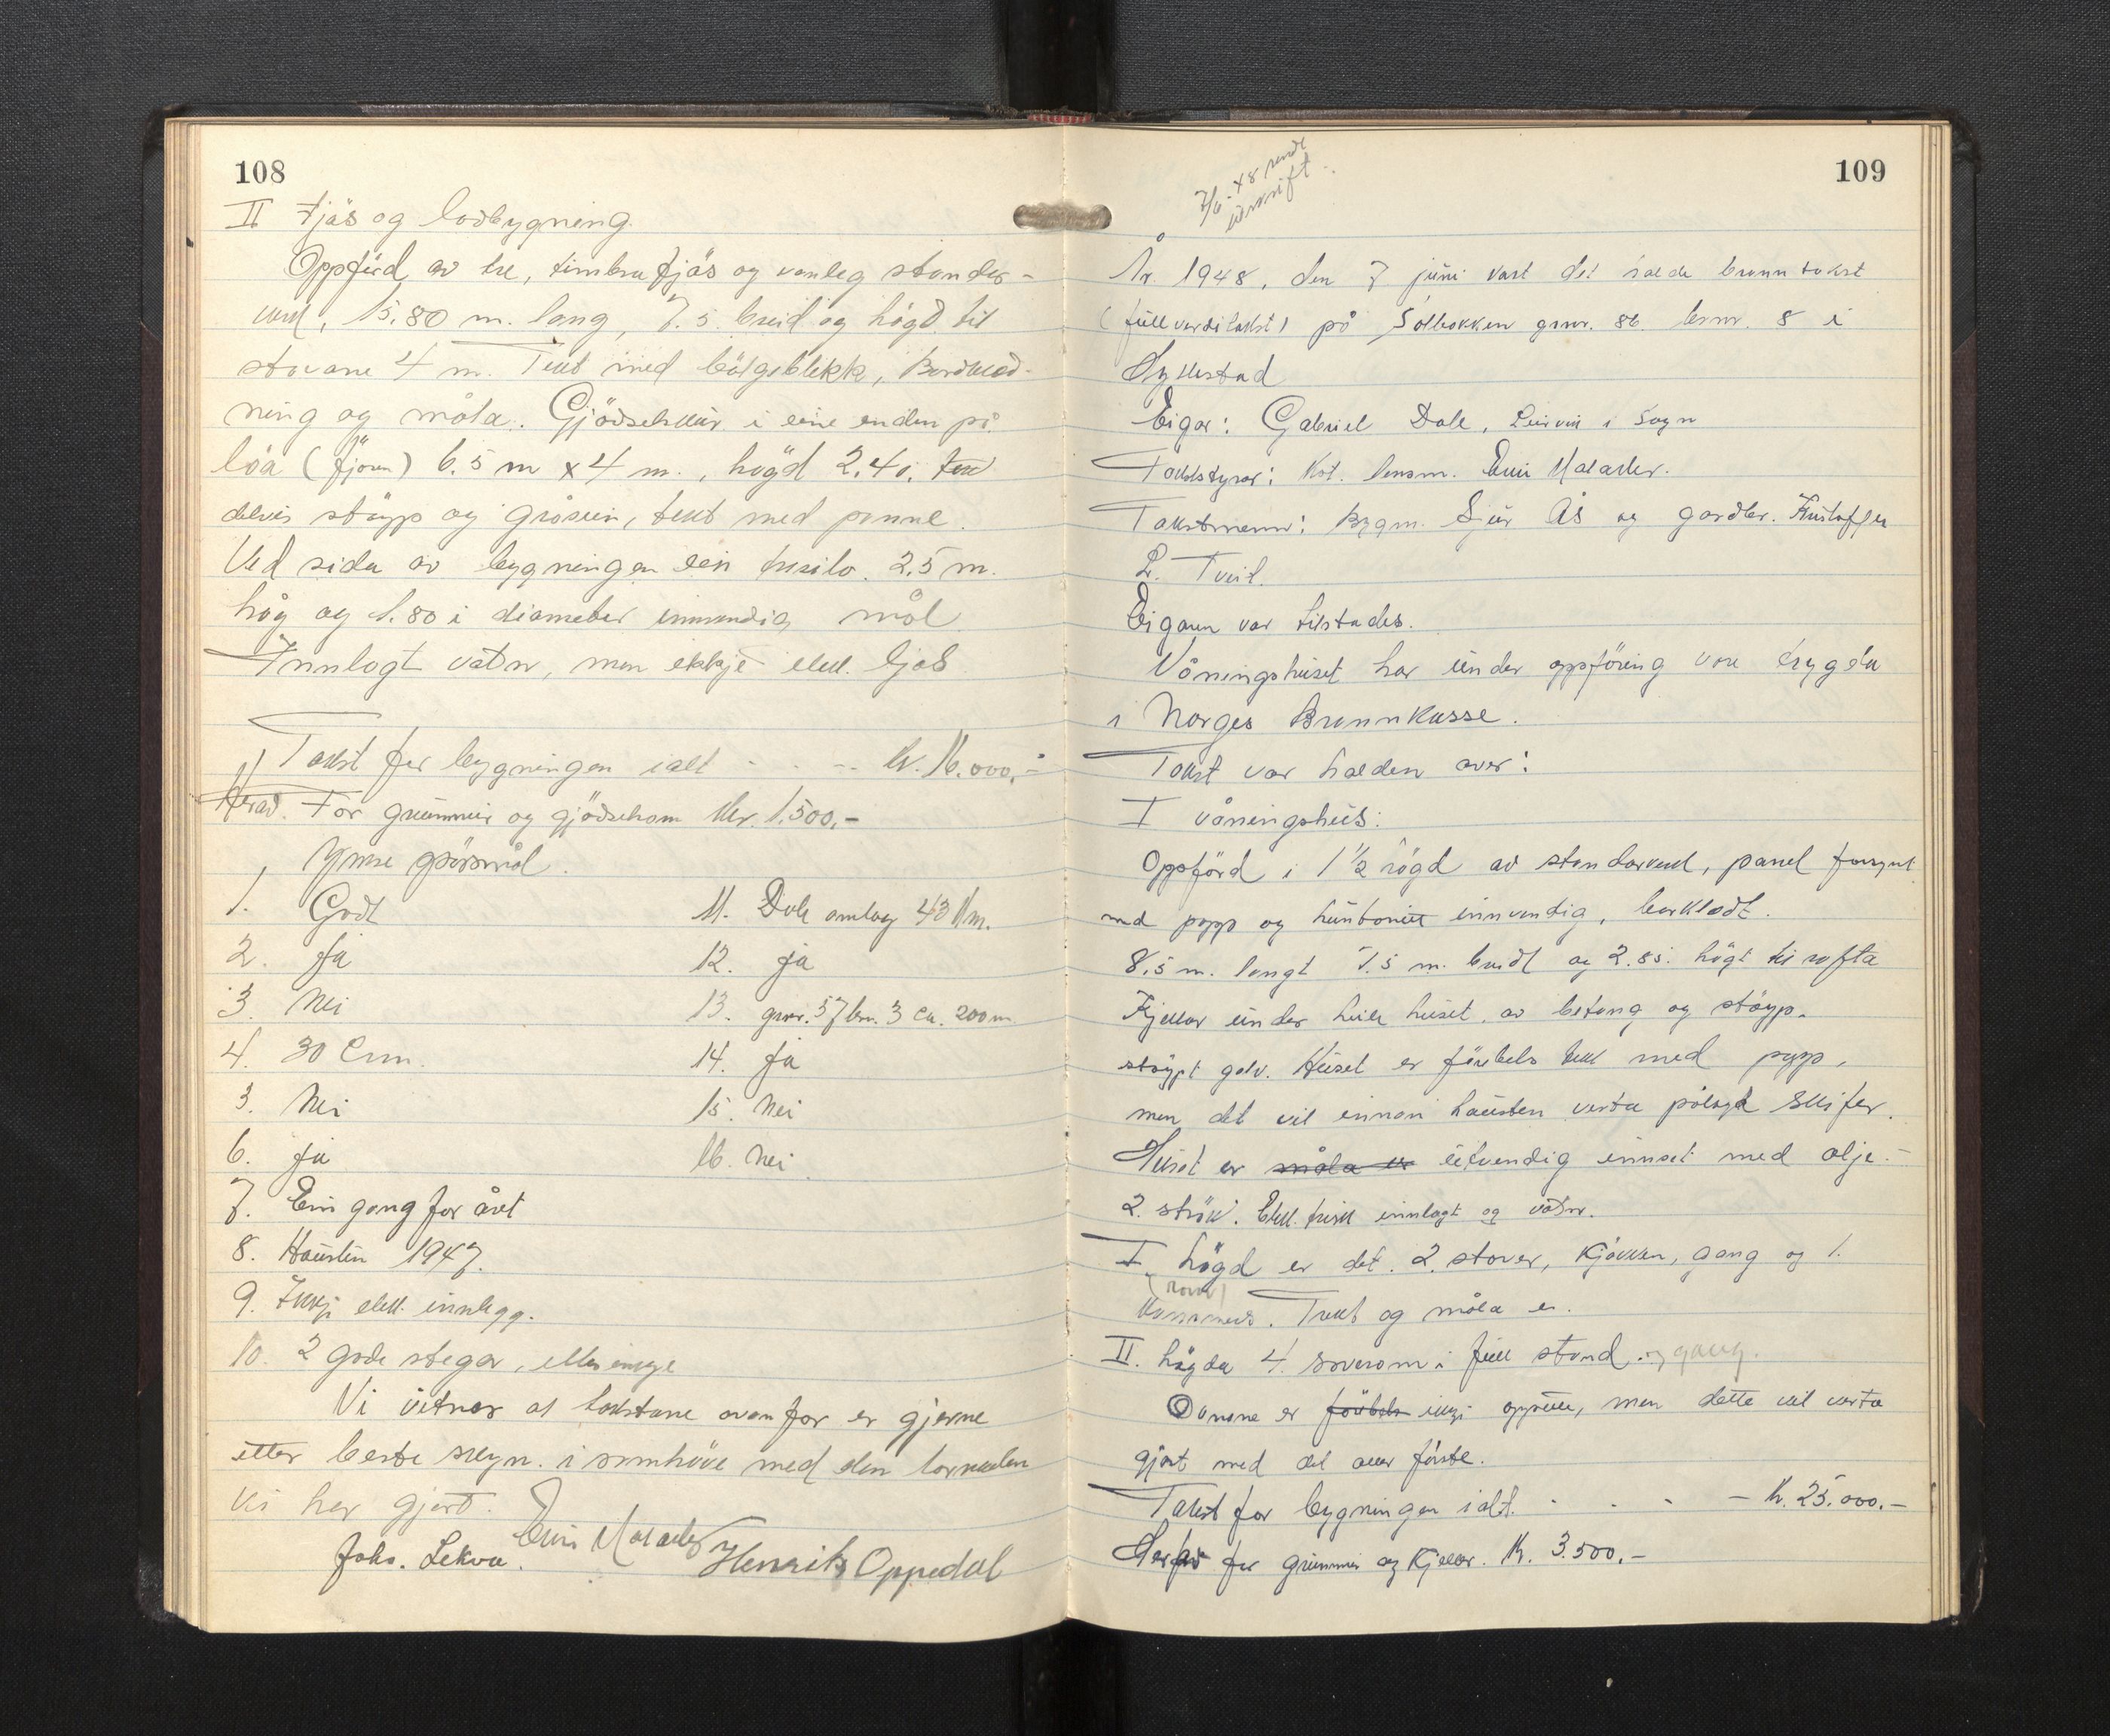 108
II Fjös og lödbygning.
Oppförd av tre, timbra fjös og vanleg stender-
verk, 15.80 m. lang, 7.5. breid og högd til
stovane 4 m. Tekt med bölgeblekk, Bordkled-
ning og måla. Gjödselskur i eine enden på
löa (fjösen) 6.5 m x 4 m., högd 2.40.
delvis stöyp og gråstein, tekt med panne.
Ved sida av bygningen ein tresilo. 2,5 m.
håg og 1.80 i diameter innvendig mål
Innlagt vatn, men ekkje elek. ljos
Takst for bygningen ialt - - - - kr. 16.000.-
Herav. For grunnmur og gjödselrom kr. 1.500,-
Ymse spörsmål.
1. Godt
2. Ja
3. Nei
4. 30 Cm.
5. Nei
6. Ja
7. Ein gong for året
8. Hausten 1947.
9. Ikkje elek. innlegg.
10. 2 gode stegar, elles inkje
11. Dale omlag 43 km.
12. Ja
13. gnr. 57 bnr. 3 ca. 200 m
14. Ja
15. Nei
16. Nei
Vi vitnar at takstane ovanfor er gjerne
etter beste skyn. i samhöve med den lovnaden
vi har gjort.
Johs. Lekva. Henrik Oppedal
109
7/6-48 sendt
utskrift
År 1948, den 7 juni vart det halde branntakst
(fullverditakst) på Solbakken gnr. 86 bnr. 8 i
Hyllestad
Eigar: Gabriel Dale, Leirvik i Sogn
Takststyrar: Kst. lensm.
Takstmenn: Bygm. Sjur Ås og gardbr. Kristoffer
L. Tveit.
Eigaren var tilstades.
Våningshuset har under oppföring vore trygda
i Norges Brannkasse.
Takst var halden over:
I våningshus:
Oppförd i 1½ högd av standarverk, panel forsynt
med papp og huntonitt innvendig, borkledt.
8,5 m. langt 7.5 m. breidt og 2.85. högt til rafta
Kjellar under heile huset. av betong og stöyp.
stöypt golv. Huset er förebels tekt med papp,
men det vil innan hausten verta pålagt skifer.
Huset er måla er utvendig innset med olje.-
2. strök. Elektrisk innlagt og vatn.
I högd er det. 2. stover, Kjökken, gang og 1.
(rom)
kammers. Trekt og måla er.
II. högda 4. soverom i full stand. og gang.
Omnane er förebels ikkje oppsette, men dette vil verta
gjort med det aller förste.
Takst for bygningen ialt. - - - - kr. 25.000.-
Herav for grunnmur og kjellar. kr. 3.500.-